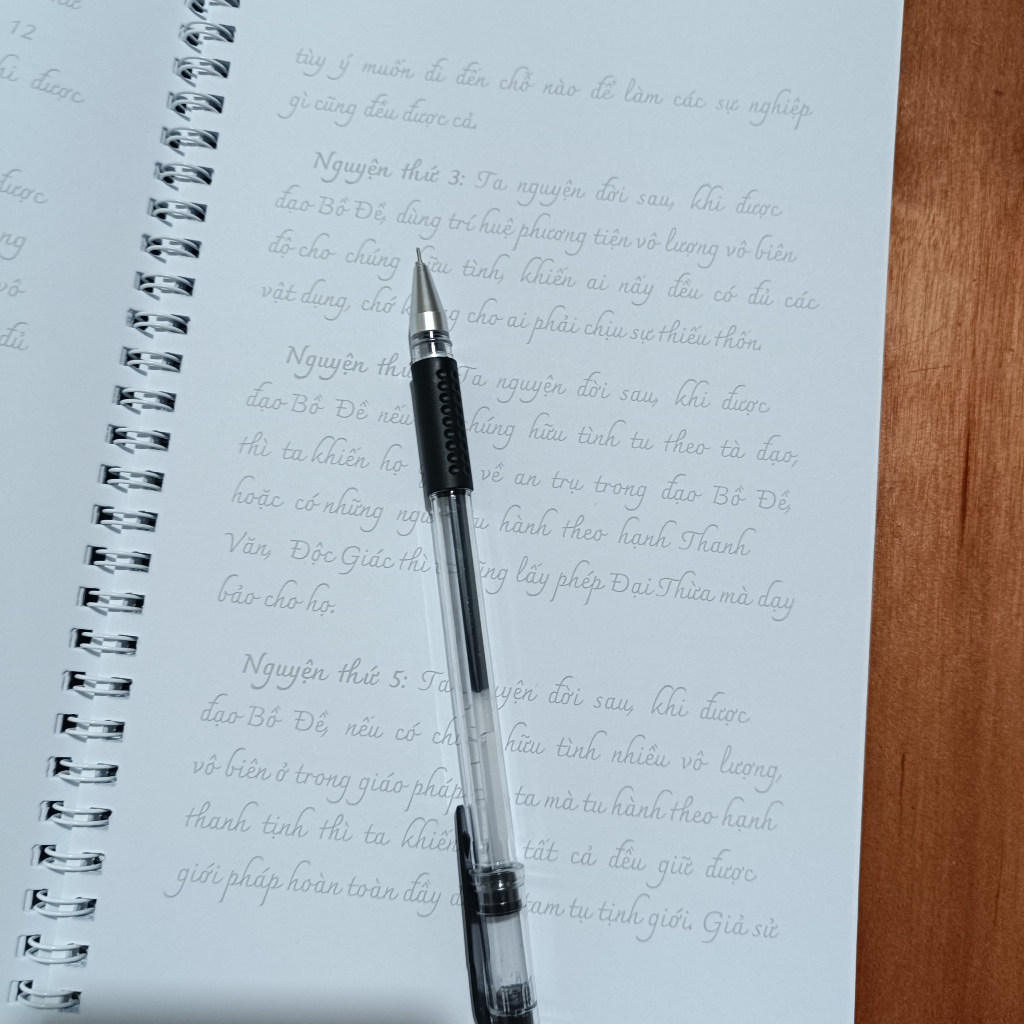 12
được
được
đủ
tùy ý muốn đi đến chỗ nào để làm các sự nghiệp
gì cũng đều được cả.
Nguyện thứ 3: Ta nguyện đời sau, khi được
đạo Bồ Đề, dùng trí huệ phương tiện vô lượng vô biên
độ cho chúng hữu tình, khiến ai nấy đều có đủ các
vật dụng, chớ không cho ai phải chịu sự thiếu thốn.
Nguyện thứ Ta nguyện đời sau, khi được
đạo Bồ Đề nếu chúng hữu tình tu theo tà đạo,
thì ta khiến họ về an trụ trong đạo Bồ Đề,
hoặc có những hành theo hạnh Thanh
Văn, Độc Giác thì cũng lấy phép Đại Thừa mà dạy
bảo cho họ.
Nguyện thứ 5: Ta nguyện đời sau, khi được
đạo Bồ Đề, nếu có hữu tình nhiều vô lượng,
vô biên ở trong giáo pháp ta mà tu hành theo hạnh
thanh tịnh thì ta khiến tất cả đều giữ được
giới pháp hoàn toàn đầy tam tụ tịnh giới. Giả sử